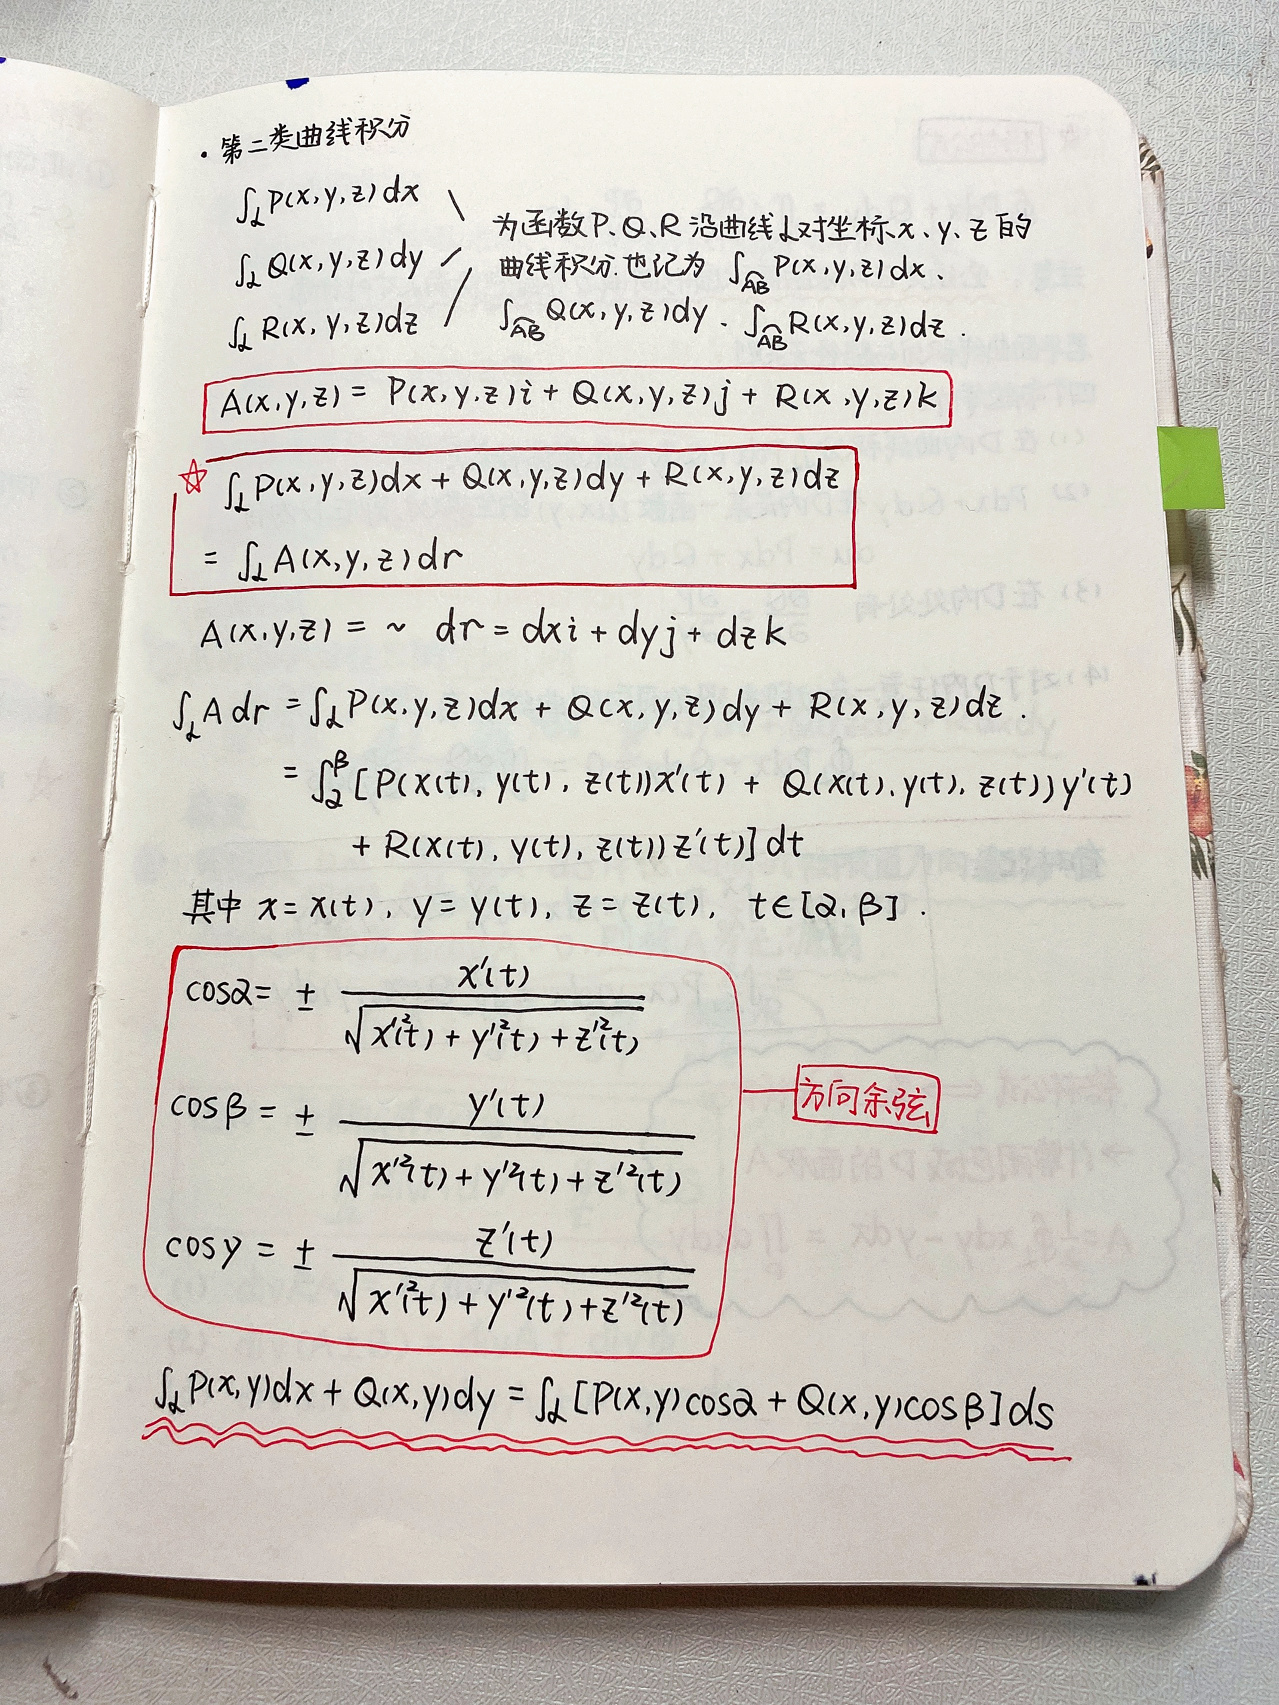 · 第二类曲线积分
∫_L P(x,y,z)dx
∫_L Q(x,y,z)dy
∫_L R(x,y,z)dz
为函数P、Q、R沿曲线L对坐标x、y、z的
曲线积分.也记为 ∫_{\overset{\frown}{AB}} P(x,y,z)dx、
∫_{\overset{\frown}{AB}} Q(x,y,z)dy、∫_{\overset{\frown}{AB}} R(x,y,z)dz.
A(x,y,z) = P(x,y,z)i + Q(x,y,z)j + R(x,y,z)k
☆ ∫_L P(x,y,z)dx + Q(x,y,z)dy + R(x,y,z)dz
= ∫_L A(x,y,z)dr
A(x,y,z) = ~ dr = dxi + dyj + dzk
∫_L A dr = ∫_L P(x,y,z)dx + Q(x,y,z)dy + R(x,y,z)dz.
= ∫_α^β [P(x(t), y(t), z(t))x'(t) + Q(x(t), y(t), z(t))y'(t)
+ R(x(t), y(t), z(t))z'(t)]dt
其中 x = x(t), y = y(t), z = z(t), t∈[α, β].
cosα = ± x'(t) / √(x'²(t) + y'²(t) + z'²(t))
cosβ = ± y'(t) / √(x'²(t) + y'²(t) + z'²(t))
方向余弦
cosγ = ± z'(t) / √(x'²(t) + y'²(t) + z'²(t))
∫_L P(x,y)dx + Q(x,y)dy = ∫_L [P(x,y)cosα + Q(x,y)cosβ]ds